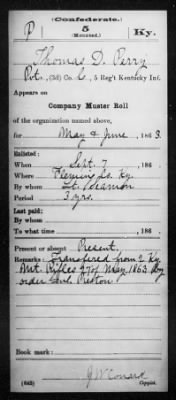 (Confederate.)
P 5 Ky.
(Mounted.)
Thomas D. Perry
Pvt., (3d) Co. C, 5 Reg't Kentucky Inf.
Appears on
Company Muster Roll
of the organization named above,
for May & June, 1863.
Enlisted:
When Sept. 7, 186 .
Where Fleming Co. Ky.
By whom Lt.
Period 3 yrs.
Last paid:
By whom
To what time , 186 .
Present or absent Present.
Remarks: Transfered from 2 Ky
Mt. Rifles 27 of May 1863 by
order Genl Preston
Book mark:
(642) Copyist.